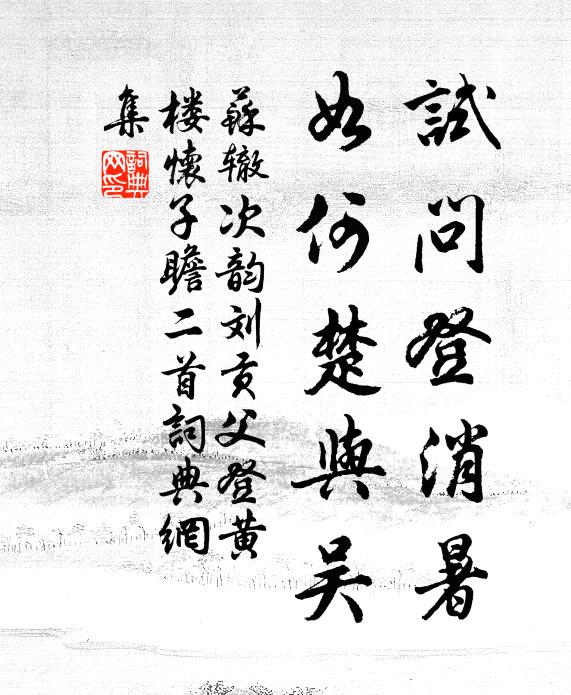 試問登消暑
如何楚與吴
蘇辙次韵刘贡父登黄
楼懷子瞻二首詞典網
集
詞典
网印